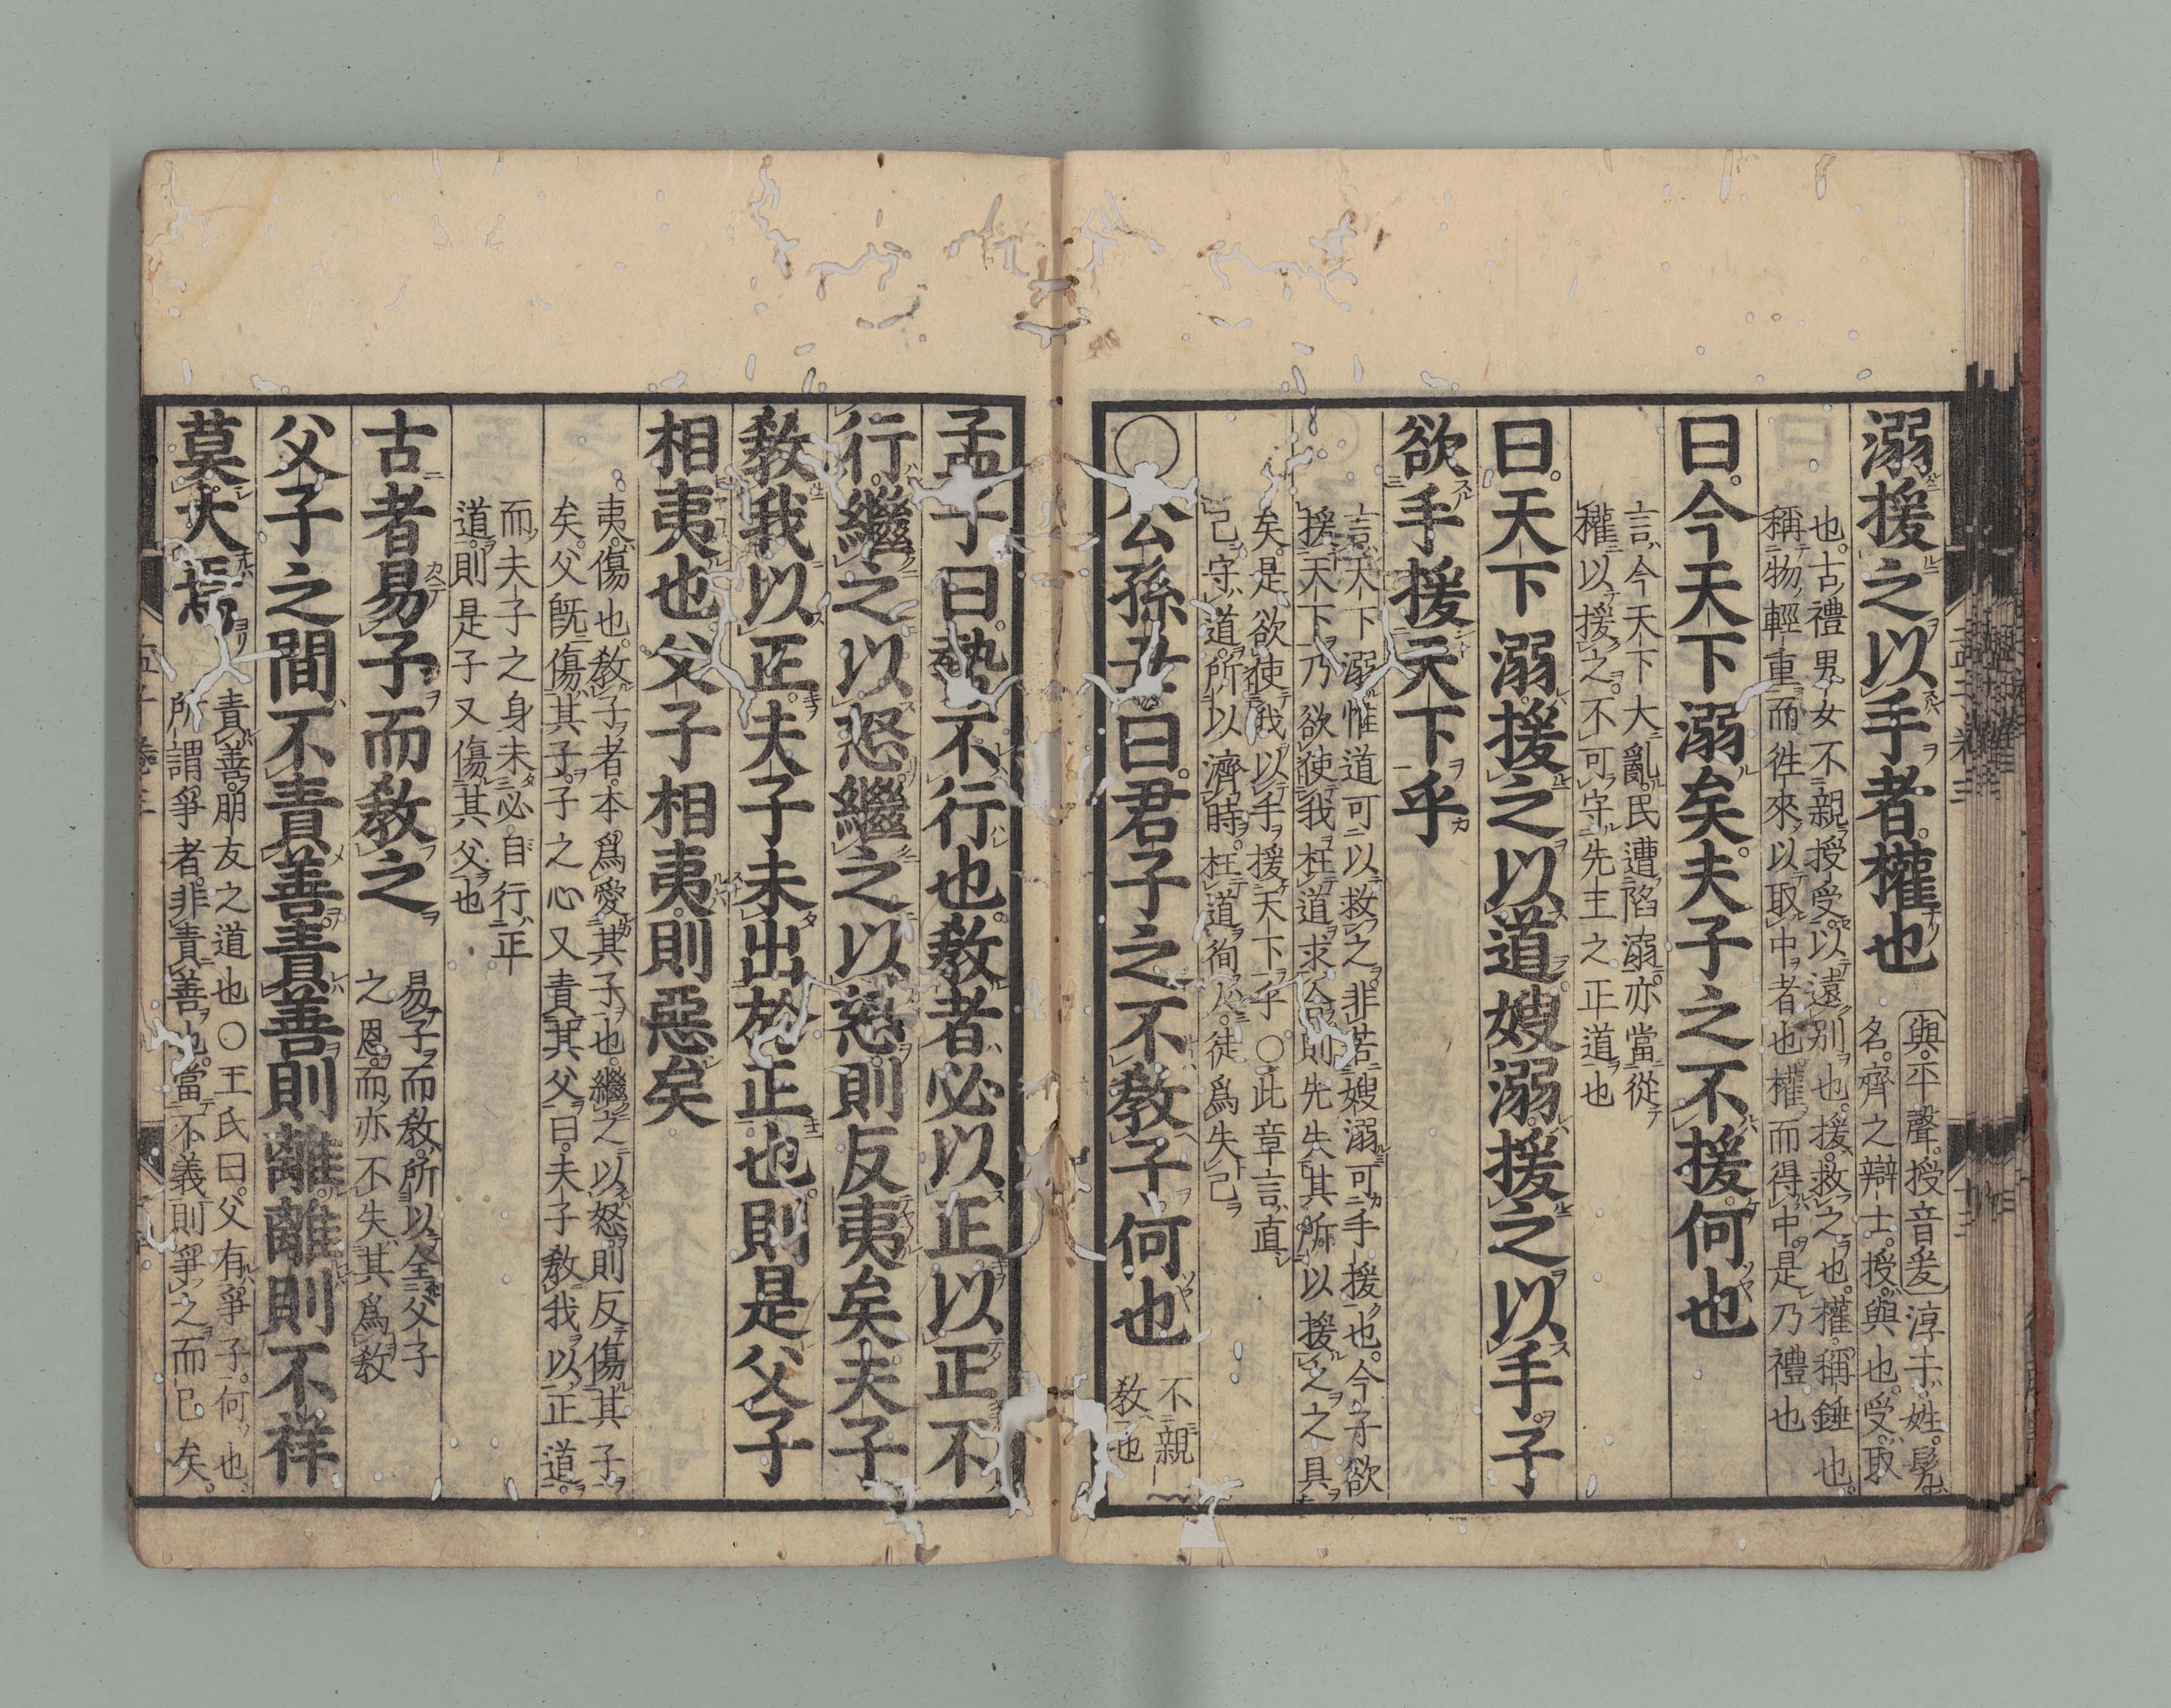 溺援之以手者權也
與平聲授音爰淳于姓髡
名齊之辯士授與也受取
也古禮男女不親授受以遠別也援救之也權稱錘也
稱物輕重而徃來以取中者也權而得中是乃禮也
曰今天下溺矣夫子之不援何也
言今天下大亂民遭陷溺亦當從
權以援之不可守先王之正道也
曰天下溺援之以道嫂溺援之以手子
欲手援天下乎
言天下溺惟道可以救之非若嫂溺可手援也今子欲
援天下乃欲使我枉道求合則先失其所以援之之具
矣是欲使我以手援天下乎○此章言直
己守道所以濟時枉道徇人徒爲失己
○公孫丑曰君子之不敎子何也
不親
敎也
孟子曰勢不行也敎者必以正以正不
行繼之以怒繼之以怒則反夷矣夫子
敎我以正夫子未出於正也則是父子
相夷也父子相夷則惡矣
夷傷也敎子者本爲愛其子也繼之以怒則反傷其子
矣父旣傷其子子之心又責其父曰夫子敎我以正道
而夫子之身未必自行正
道則是子又傷其父也
古者易子而敎之
易子而敎所以全父子
之恩而亦不失其爲敎
父子之間不責善責善則離離則不祥
莫大焉
責善朋友之道也○王氏曰父有爭子何也
所謂爭者非責善也當不義則爭之而已矣